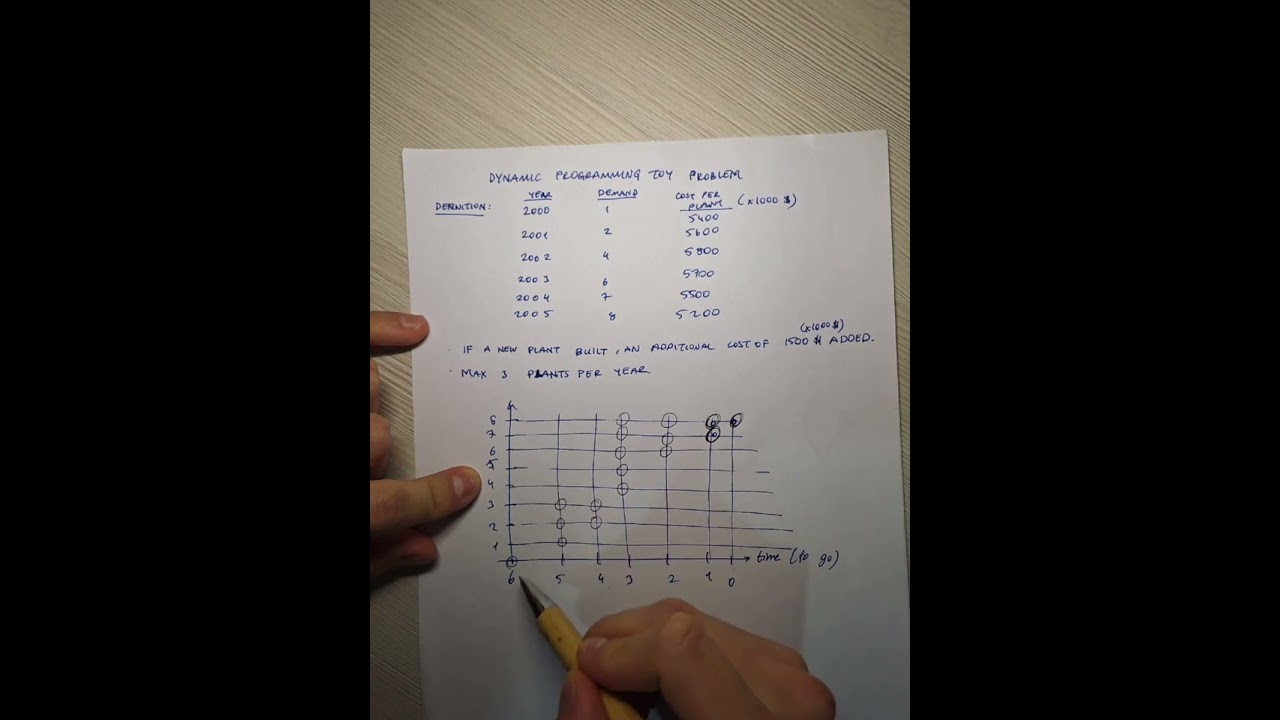 DYNAMIC PROGRAMMING TOY PROBLEM
DEFINITION: YEAR DEMAND COST PER PLANT (x1000 $)
2000 1 5400
2001 2 5600
2002 4 5800
2003 6 5700
2004 7 5500
2005 8 5200
(x1000 $)
· IF A NEW PLANT BUILT, AN ADDITIONAL COST OF 1500 $ ADDED.
· MAX 3 PLANTS PER YEAR
8
7
6
5
4
3
2
1
time (to go)
6 5 4 3 2 1 0